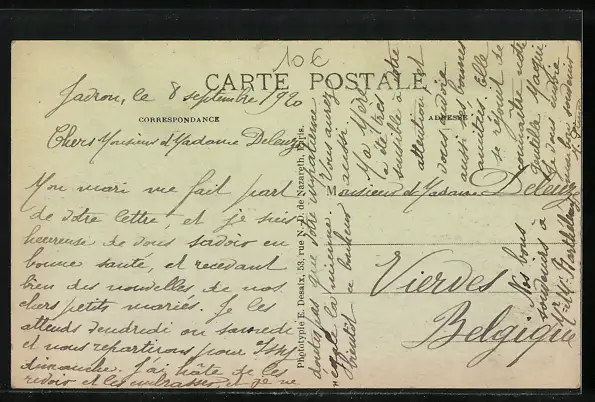 10€
CARTE POSTALE
CORRESPONDANCE
ADRESSE
le 8 septembre 1920
Chers Monsieur et Madame Deleuze
Mon mari me fait part
de votre lettre, et je suis
heureuse de vous savoir en
bonne santé, et recevant
bien des nouvelles de nos
chers petits mariés. Je les
attends vendredi ou samedi
et nous repartirons pour
dimanche. J'ai hâte de les
revoir et les embrasser et je ne
doute pas que votre impatience
égale la mienne. Vous aurez
bientôt ce bonheur
aussi
Ma Mère
a été très
sensible à votre
attention et
vous envoie
aussi ses bonnes
amitiés. Elle
se réjouit de
connaître votre
gentille
Monsieur et Madame Deleuze
Vierves
Belgique
Nos bons
toujours à
Phototypie E. Desaix, 53, rue N.-D. de Nazareth, Paris.